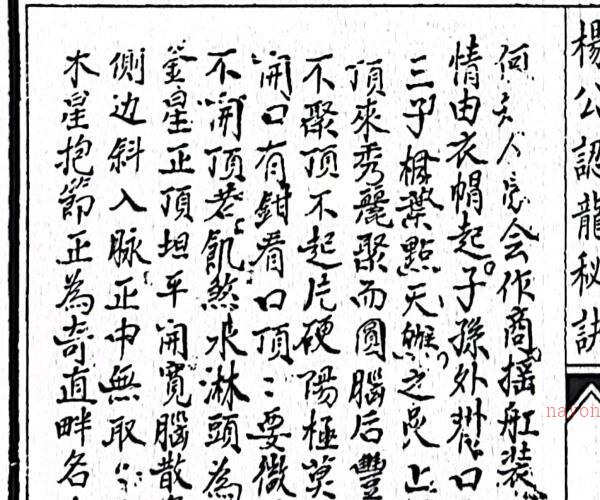 楊公認龍秘訣
何 人 会作商揺舡装
情由衣帽起子孫外 口
三子 葉點天 之 上
頂來秀麗聚而圓腦后豐
不聚頂不起片硬陽極莫
開口有鉗看口頂〻要微
不開頂若飢煞水淋頭為
釜星正頂坦平開寬腦散
側边斜入脉正中無取
木星抱節正為奇直畔各